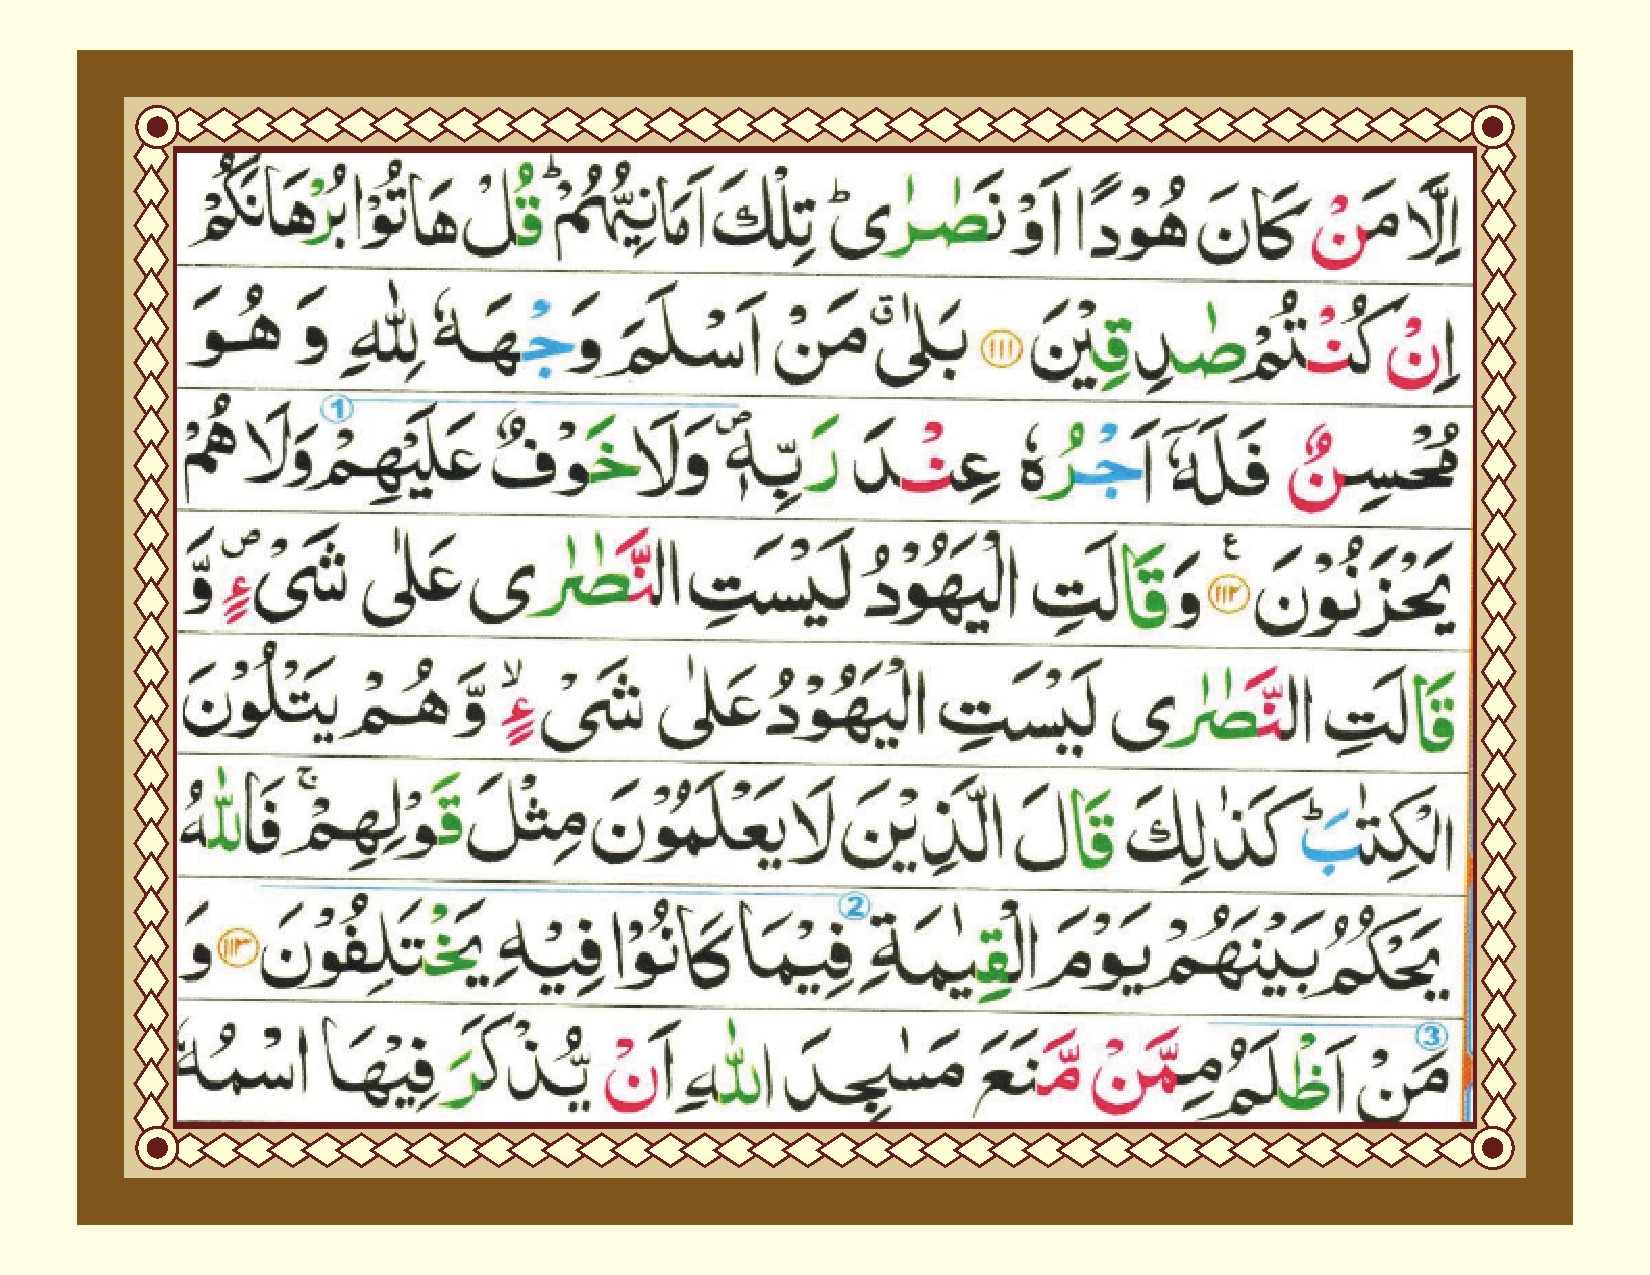 اِلَّا مَنْ كَانَ هُوْدًا اَوْ نَصٰرٰى ؕ تِلْكَ اَمَانِيُّهُمْ ؕ قُلْ هَاتُوْا بُرْهَانَكُمْ
اِنْ كُنْتُمْ صٰدِقِيْنَ ﴿۱۱۱﴾ بَلٰى ۗ مَنْ اَسْلَمَ وَجْهَهٗ لِلّٰهِ وَ هُوَ
مُحْسِنٌ فَلَهٗۤ اَجْرُهٗ عِنْدَ رَبِّهٖ ۪ وَلَا خَوْفٌ عَلَيْهِمْ ① وَلَا هُمْ
يَحْزَنُوْنَ ﴿۱۱۲﴾ ع وَقَالَتِ الْيَهُوْدُ لَيْسَتِ النَّصٰرٰى عَلٰى شَىْءٍ ۪ وَّ
قَالَتِ النَّصٰرٰى لَيْسَتِ الْيَهُوْدُ عَلٰى شَىْءٍ ۙ وَّهُمْ يَتْلُوْنَ
الْكِتٰبَ ؕ كَذٰلِكَ قَالَ الَّذِيْنَ لَا يَعْلَمُوْنَ مِثْلَ قَوْلِهِمْ ۚ فَاللّٰهُ
يَحْكُمُ بَيْنَهُمْ يَوْمَ الْقِيٰمَةِ ② فِيْمَا كَانُوْا فِيْهِ يَخْتَلِفُوْنَ ﴿۱۱۳﴾ وَ
③ مَنْ اَظْلَمُ مِمَّنْ مَّنَعَ مَسٰجِدَ اللّٰهِ اَنْ يُّذْكَرَ فِيْهَا اسْمُهٗ